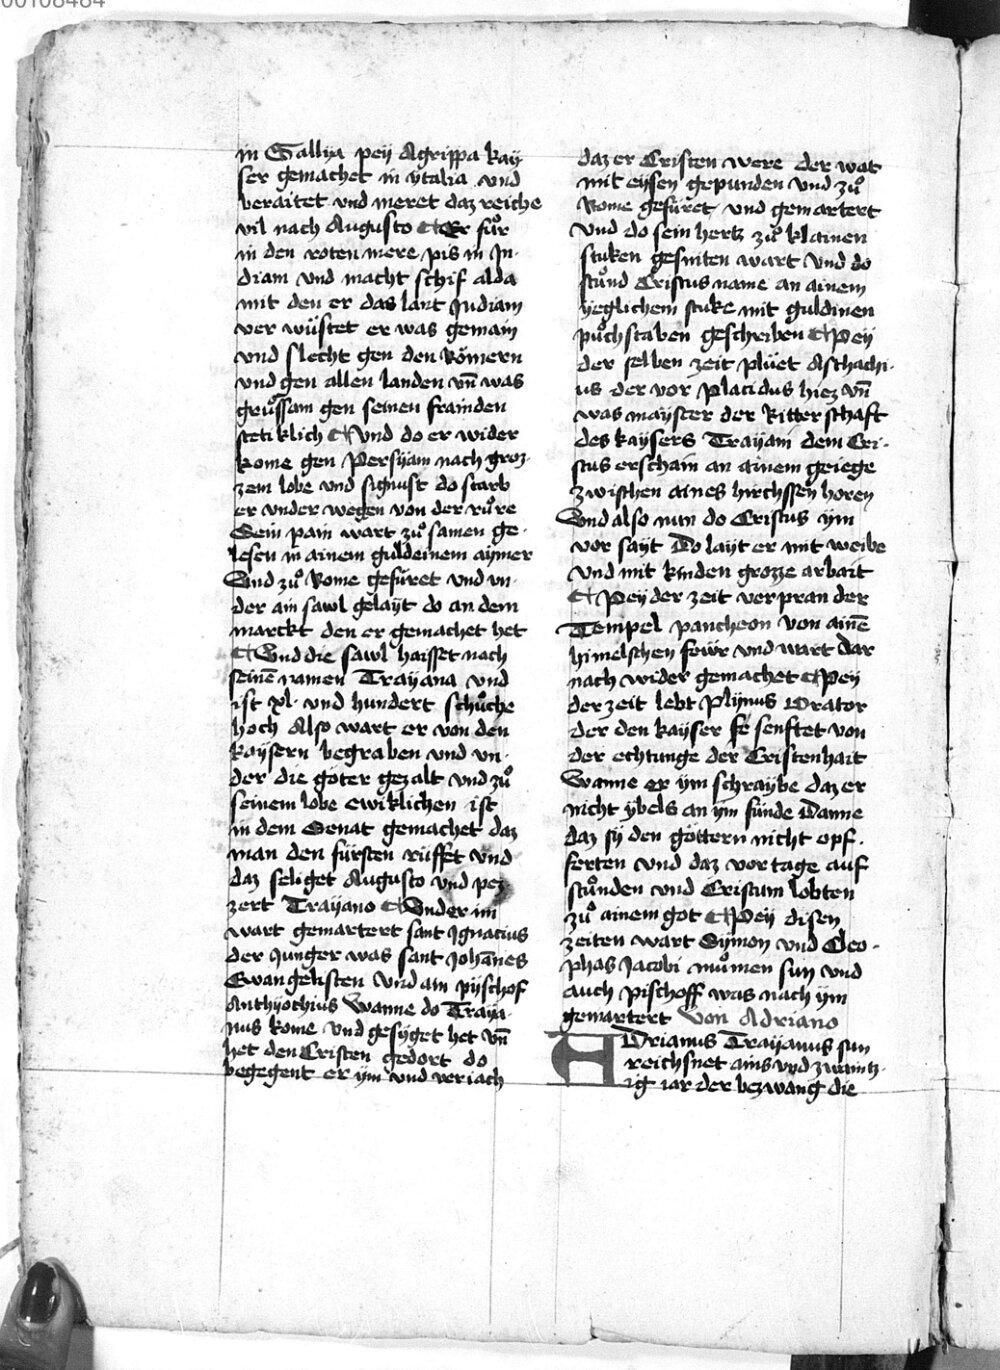 00108484
in Gallya pey Agrippa kay
ser gemachet in ytalia vnd
beraitet vnd meret daz reiche
vil nach Augusto Er fuͦr
in den roten mere pis in In-
diam vnd macht schif alda
mit den er das lant Indiam
ver wüstet er was gemain
vnd slecht gen den Römern
vnd gen allen landen vn̄ was
gruͦssam gen seinen frainden
stetiklich Vnd do er wider
kome gen Persyam nach groz-
zem lobe vnd signust do starb
er vnder wegen von der ruͦre
Sein pain wart zuͦ samen ge-
lesen in ainem guldeinem aymer
Vnd zuͦ Rome gefüret vnd vn-
der ain sawl gelayt do an dem
marckt den er gemachet het
Vnd die sawl haisset nach
seinē namen Trayana vnd
ist xl vnd hundert schuͦche
hoch Also wart er von den
kaysern begraben vnd vn-
der die göter gezalt vnd zuͦ
seinem lobe ewiklichen ist
in dem Senat gemachet daz
man den fürsten rüffet vnd
daz seliget Augusto vnd pez
zert Trayano Vnder im
wart gemartert sant Ignacius
der Junger was sant Johānes
Ewangelisten vnd ain pyschof
Anthyochius Wanne do Traya-
nus kome vnd gesyget het vn̄
het den Cristen gedort do
begegent er ym vnd veriach
daz er Cristen were der wat
mit eysen gepunden vnd zuͦ
Rome gefüret vnd gemartert
Vnd do sein hertz zuͦ klainen
stuken gesniten wart Vnd do
stuͦnd Cristus name an ainem
yeglichem stuke mit guldinen
puͦchstaben geschriben Pey
der selben zeit plüet Aschachi-
us der vor placidus hiez vn̄
was mayster der Ritterschaft
des kaysers Trayani dem Cri-
stus erschain an ainem geiege
zwischen aines hirchssen horen
Vnd also nun do Cristus ym
vor sayt Do layt er mit weibe
vnd mit kinden grozze arbait
Pey der zeit verpran der
Tempel pantheon von ainē
himelschen fowr vnd wart dar
nach wider gemachet Pey
der zeit lebt plynus Orator
der den kayser senftet von
der echtunge der Cristenhait
Wanne er ym schraybe daz er
nicht ybels an ym fünde Danne
daz sy den göttern nicht opf-
ferten vnd daz vor tage auf
stuͦnden vnd Cristum lobten
zuͦ ainem got Pey disen
zeiten wart Symon vnd Cleo-
phas Jacobi muͦmen sun vnd
auch pischoff was nach ym
gemartert Von Adriano
ADrianus Trayanus sun
reichsnet ains vnd zwaintz-
ig iar der bezwang die